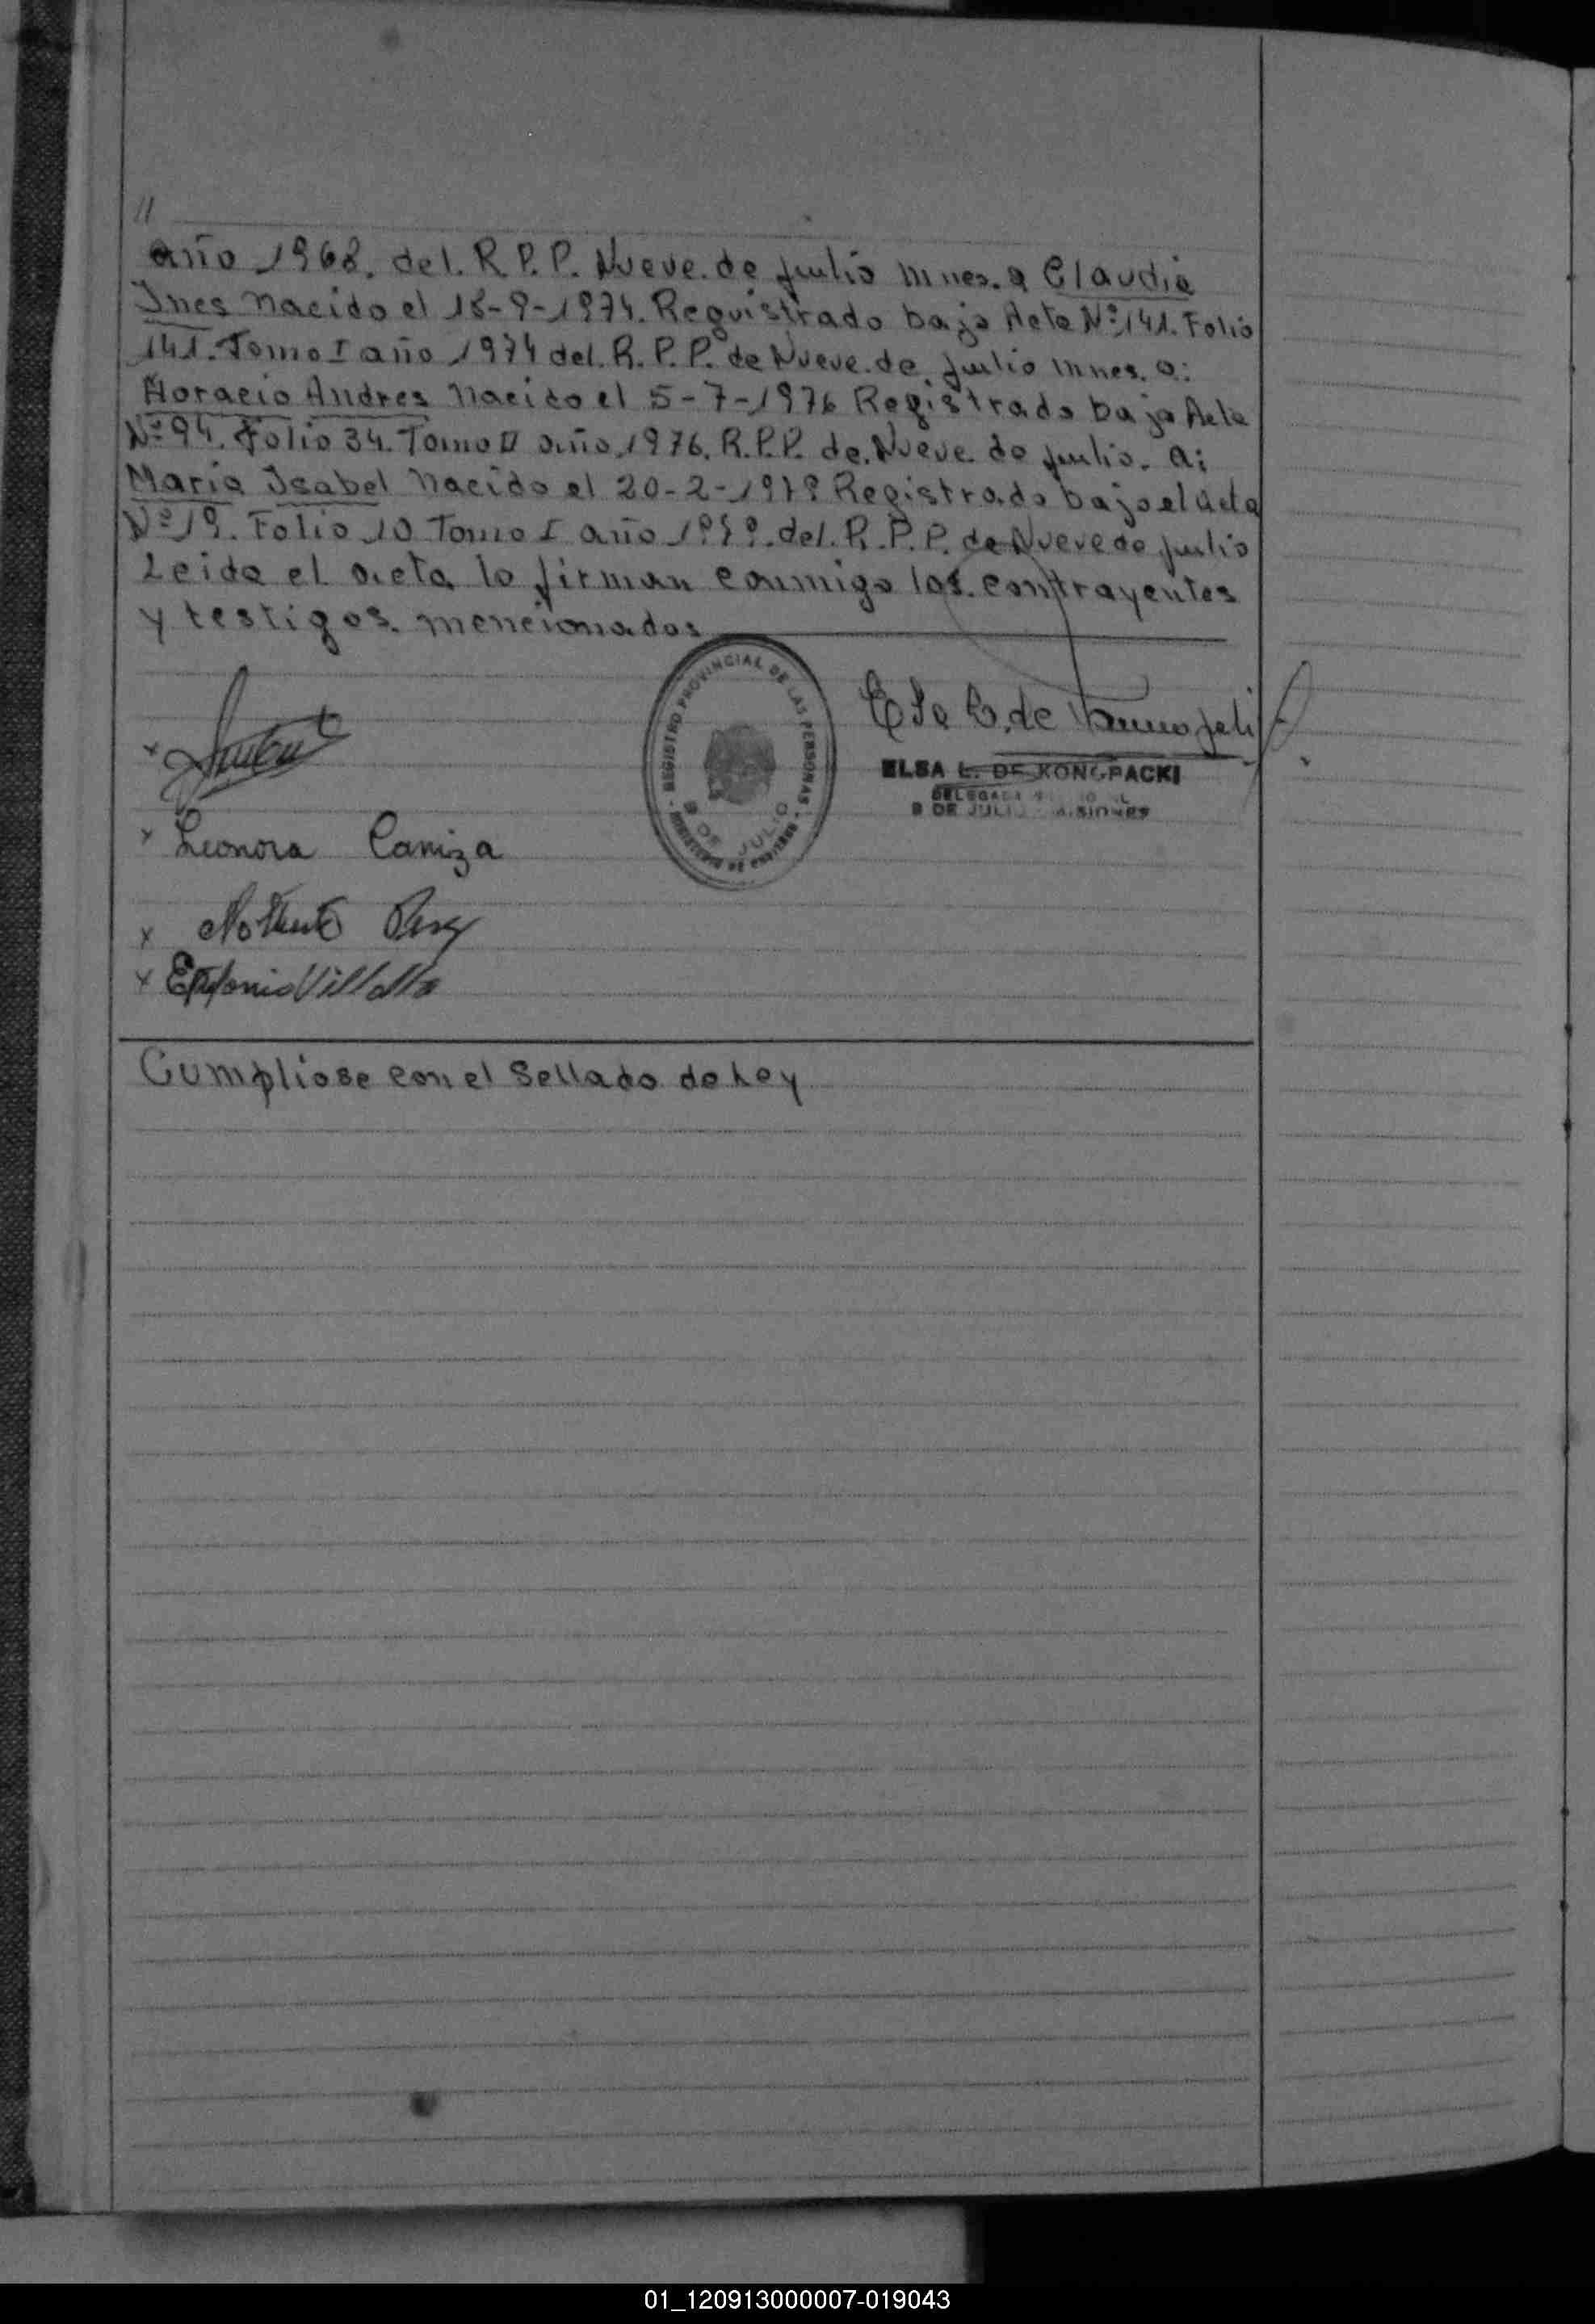 //
año 1968. del. R.P.P. Nueve. de Julio mnes. a Claudia
Ines Nacido el 18-9-1974. Reguistrado bajo Acta Nº 141. Folio
141. Tomo I año 1974 del. R.P.P. de Nueve. de Julio mnes. a:
Horacio Andres Nacido el 5-7-1976 Registrado bajo Acta
Nº 94. Folio 34. Tomo II año 1976. R.P.P. de. Nueve de Julio. a:
Maria Isabel Nacido el 20-2-1979 Registrado bajo el acta
Nº 19. Folio 10 Tomo I año 1979. del. R.P.P. de Nueve de Julio
Leida el acta la firman conmigo los contrayentes
y testigos. mencionados
REGISTRO PROVINCIAL DE LAS PERSONAS
9 DE JULIO
ELSA L. DE KONOPACKI
9 DE JULIO MISIONES
x
x Leonora Caniza
x Norberto
x Epifanio Villalba
Cumpliose con el Sellado de Ley
01_120913000007-019043